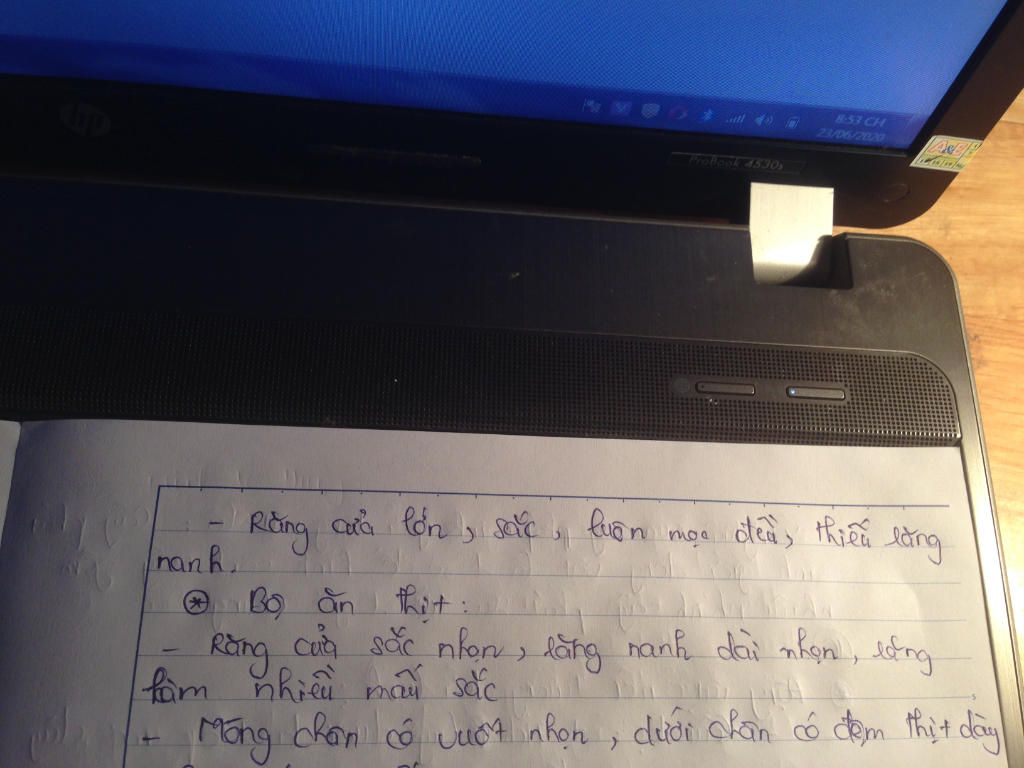 hp
8:53 CH
23/06/2020
ProBook 4530s
A&E
- Răng cửa lớn, sắc, luôn mọc đều, thiếu răng
nanh.
* Bộ ăn thịt:
- Răng cửa sắc nhọn, răng nanh dài nhọn, răng
hàm nhiều mấu sắc
- Móng chân có vuốt nhọn, dưới chân có đệm thịt dày